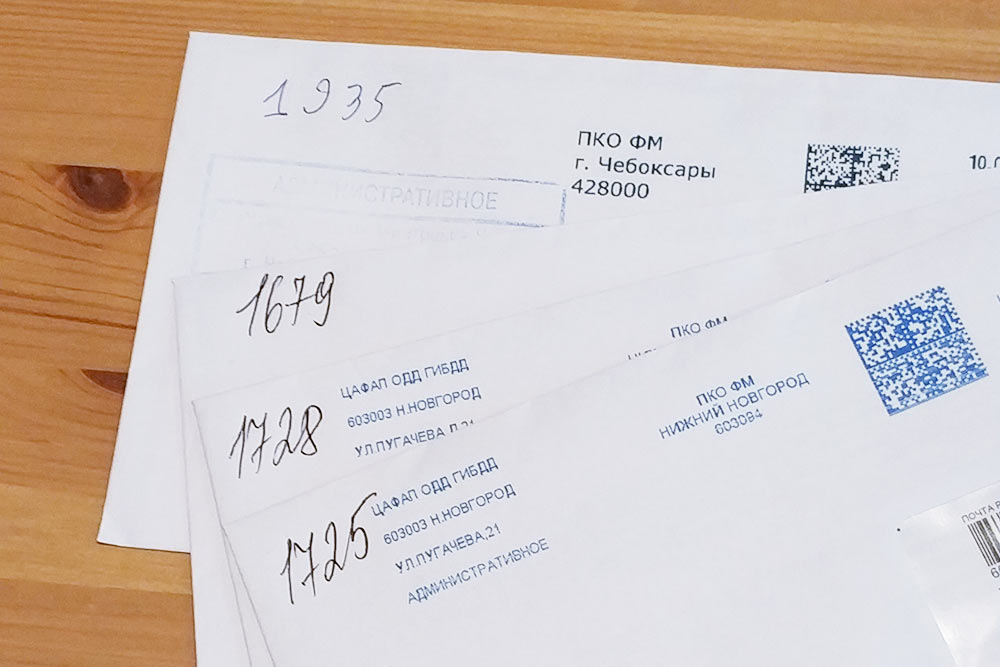 1935
ПКО ФМ
г. Чебоксары
428000
10.
АДМИНИСТРАТИВНОЕ
1679
ПКО ФМ
1728
ЦАФАП ОДД ГИБДД
603003 Н.НОВГОРОД
УЛ.ПУГАЧЕВА
ПКО ФМ
НИЖНИЙ НОВГОРОД
603094
1725
ЦАФАП ОДД ГИБДД
603003 Н.НОВГОРОД
УЛ.ПУГАЧЕВА.21
АДМИНИСТРАТИВНОЕ
ПОЧТА